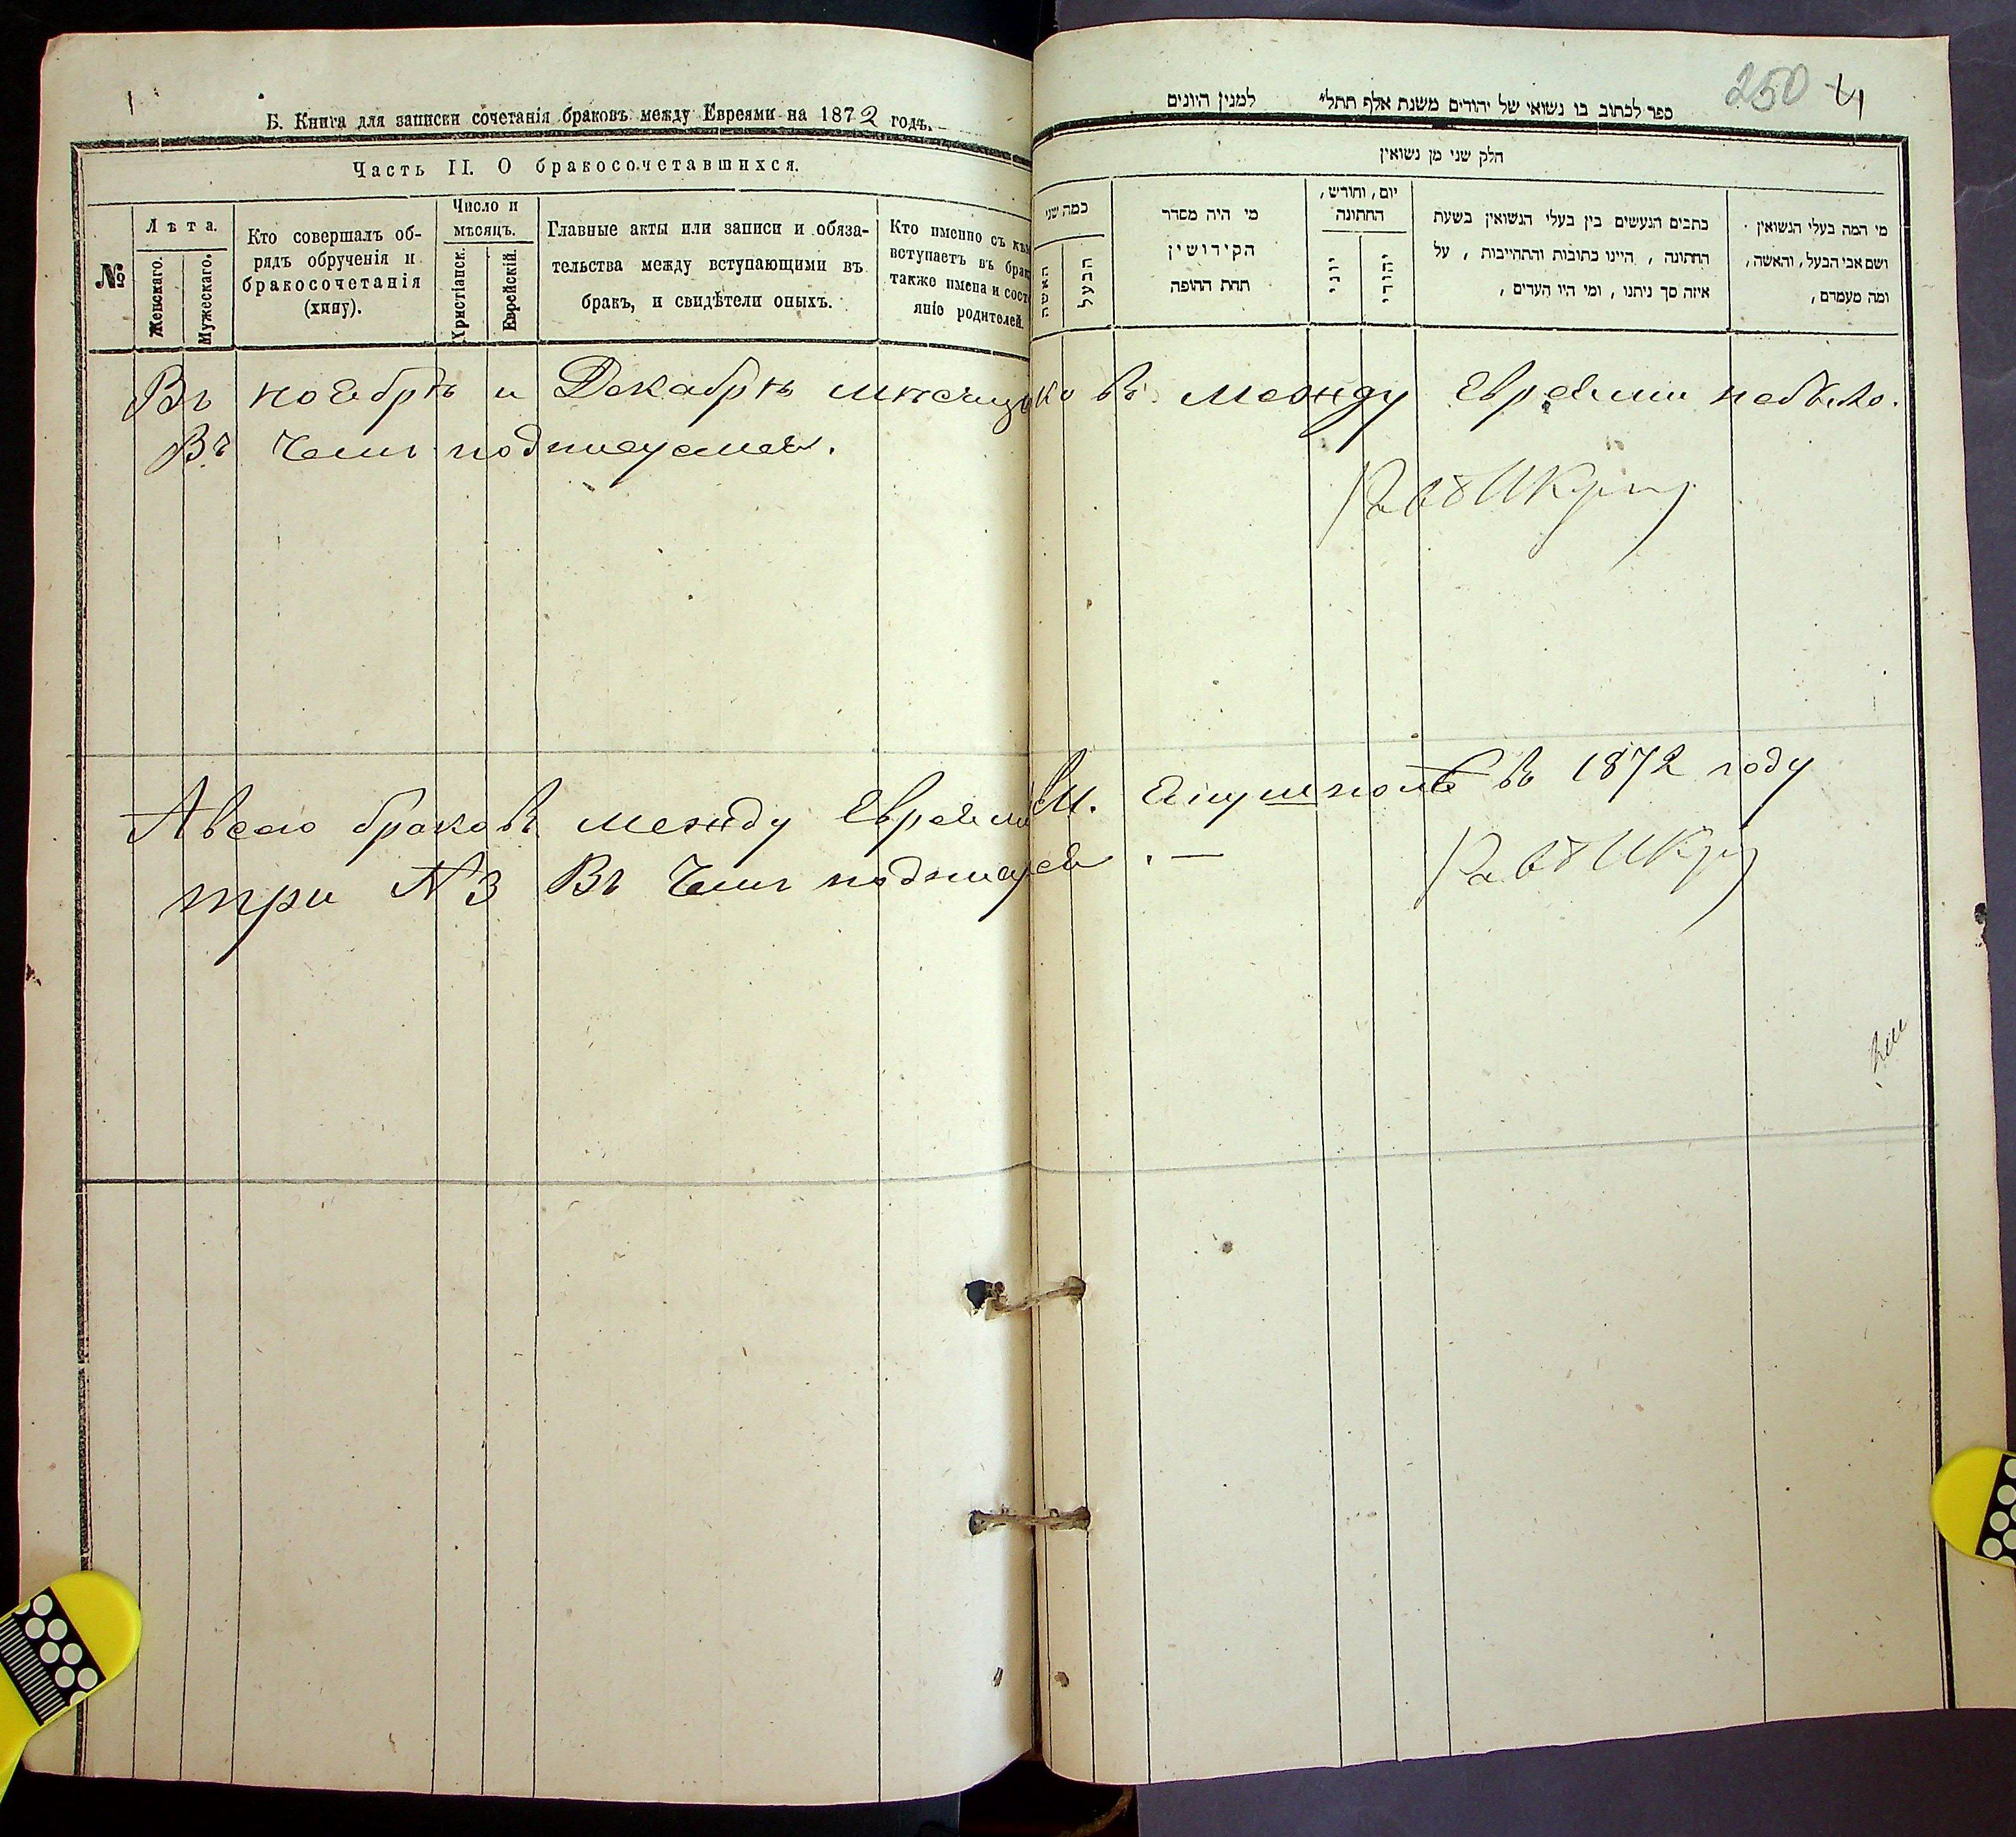 Б. Книга для записки сочетанія браковъ между Евреями на 1872 годъ.
Часть II. О бракосочетавшихся.
№
Лѣта.
Женскаго.
Мужескаго.
Кто совершалъ об-
рядъ обрученія и
бракосочетанія
(хипу).
Число и
мѣсяцъ.
Христіанск.
Еврейскій.
Главные акты или записи и обяза-
тельства между вступающими въ
бракъ, и свидѣтели оныхъ.
Кто именно съ кѣмъ
вступаетъ въ бракъ
также имена и состо
яніе родителей.
250
ספר לכתוב בו נשואי של יהודים משנת אלף תתל״ למנין היונים
חלק שני מן נשואין
כמה שני
האשה
הבעל
מי היה מסדר
הקידושין
תחת החופה
יום, וחורש,
החתונה
יוני
יהודי
כתבים הנעשים בין בעלי הנשואין בשעת
החתונה, היינו כתובות והתחייבות, על
איזה סך ניתנו, ומי היו העדים,
מי המה בעלי הנשואין
ושם אבי הבעל, והאשה,
ומה מעמדם,
Въ ноябрѣ и Декабрѣ между Евреями небыло.
Въ чемъ подписуемся.
А всего браковъ между Евреями въ 1872 году
три № 3 Въ чемъ